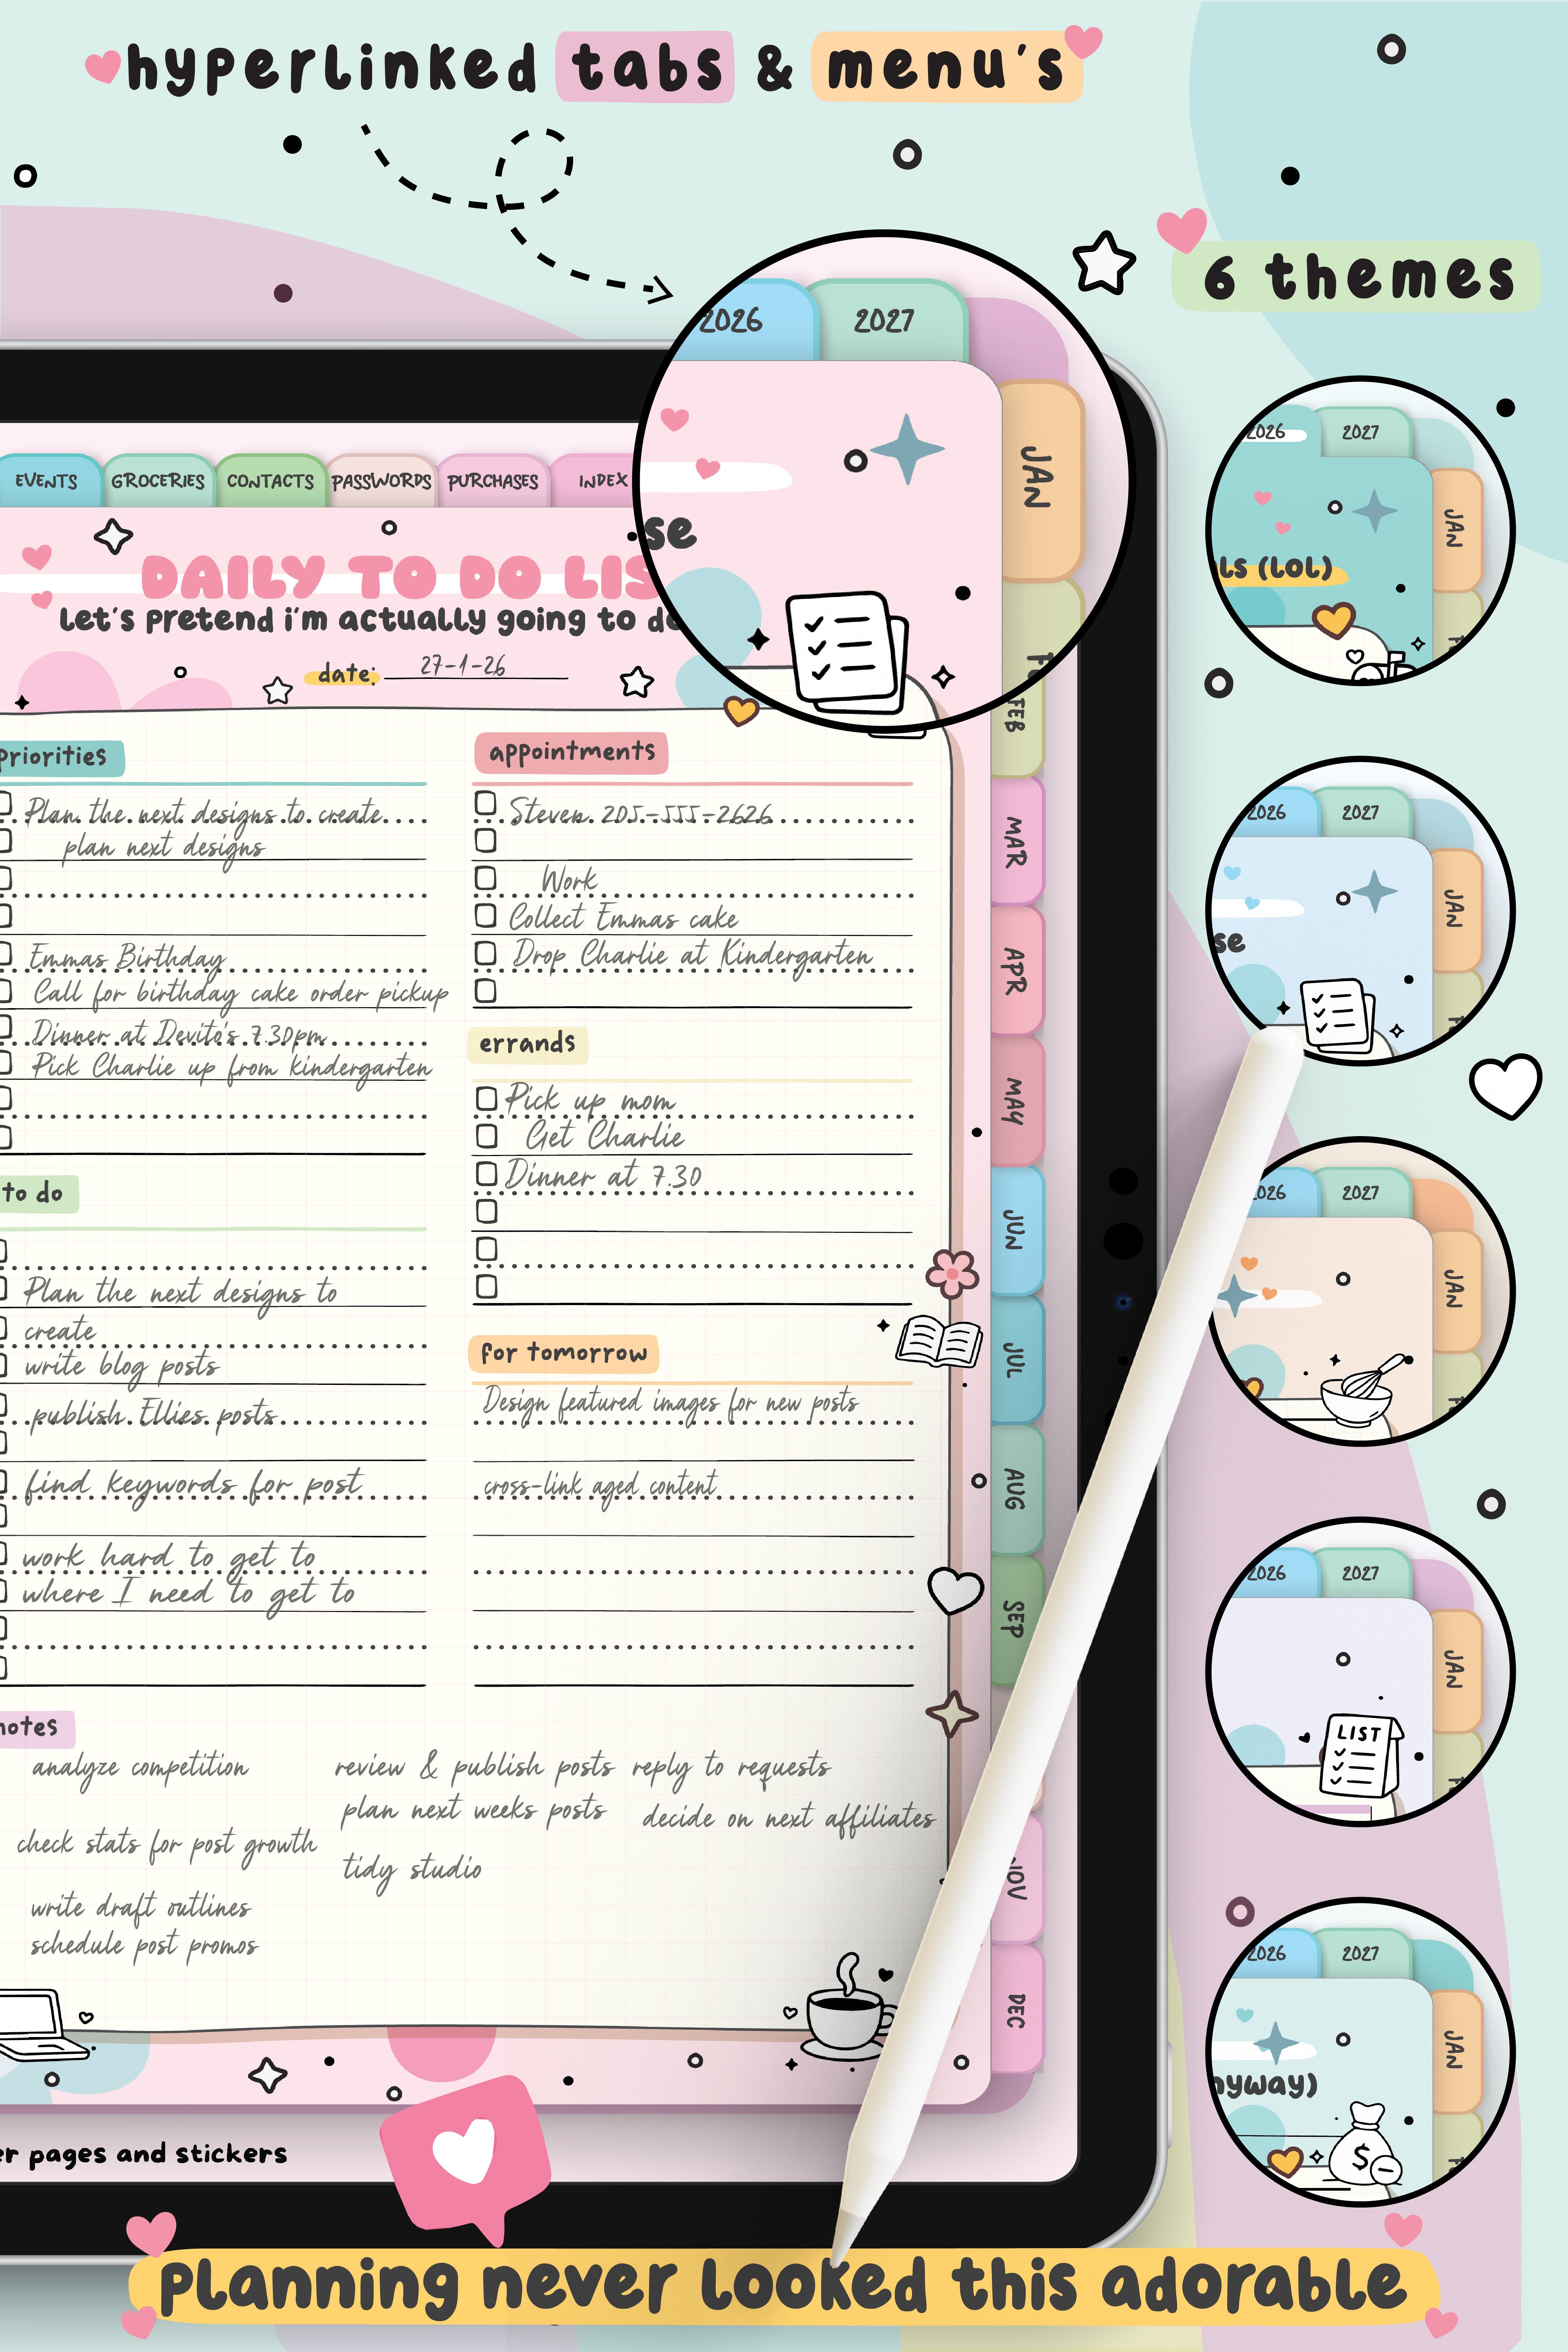 hyperlinked tabs & menu's
6 themes
2026 2027
JAN
se
EVENTS GROCERIES CONTACTS PASSWORDS PURCHASES INDEX
DAILY TO DO LIS
let's pretend i'm actually going to do
date: 27-1-26
priorities
Plan the next designs to create
plan next designs
Emmas Birthday
Call for birthday cake order pickup
Dinner at Devito's 7.30pm
Pick Charlie up from kindergarten
to do
Plan the next designs to
create
write blog posts
publish Ellies posts
find keywords for post
work hard to get to
where I need to get to
appointments
Steven 205-555-2626
Work
Collect Emmas cake
Drop Charlie at Kindergarten
errands
Pick up mom
Get Charlie
Dinner at 7.30
for tomorrow
Design featured images for new posts
cross-link aged content
notes
analyze competition
check stats for post growth
write draft outlines
schedule post promos
review & publish posts
plan next weeks posts
tidy studio
reply to requests
decide on next affiliates
FEB
MAR
APR
MAY
JUN
JUL
AUG
SEP
NOV
DEC
er pages and stickers
2026 2027
JAN
ls (lol)
2026 2027
JAN
se
2026 2027
JAN
2026 2027
JAN
LIST
2026 2027
JAN
nyway)
$
planning never looked this adorable